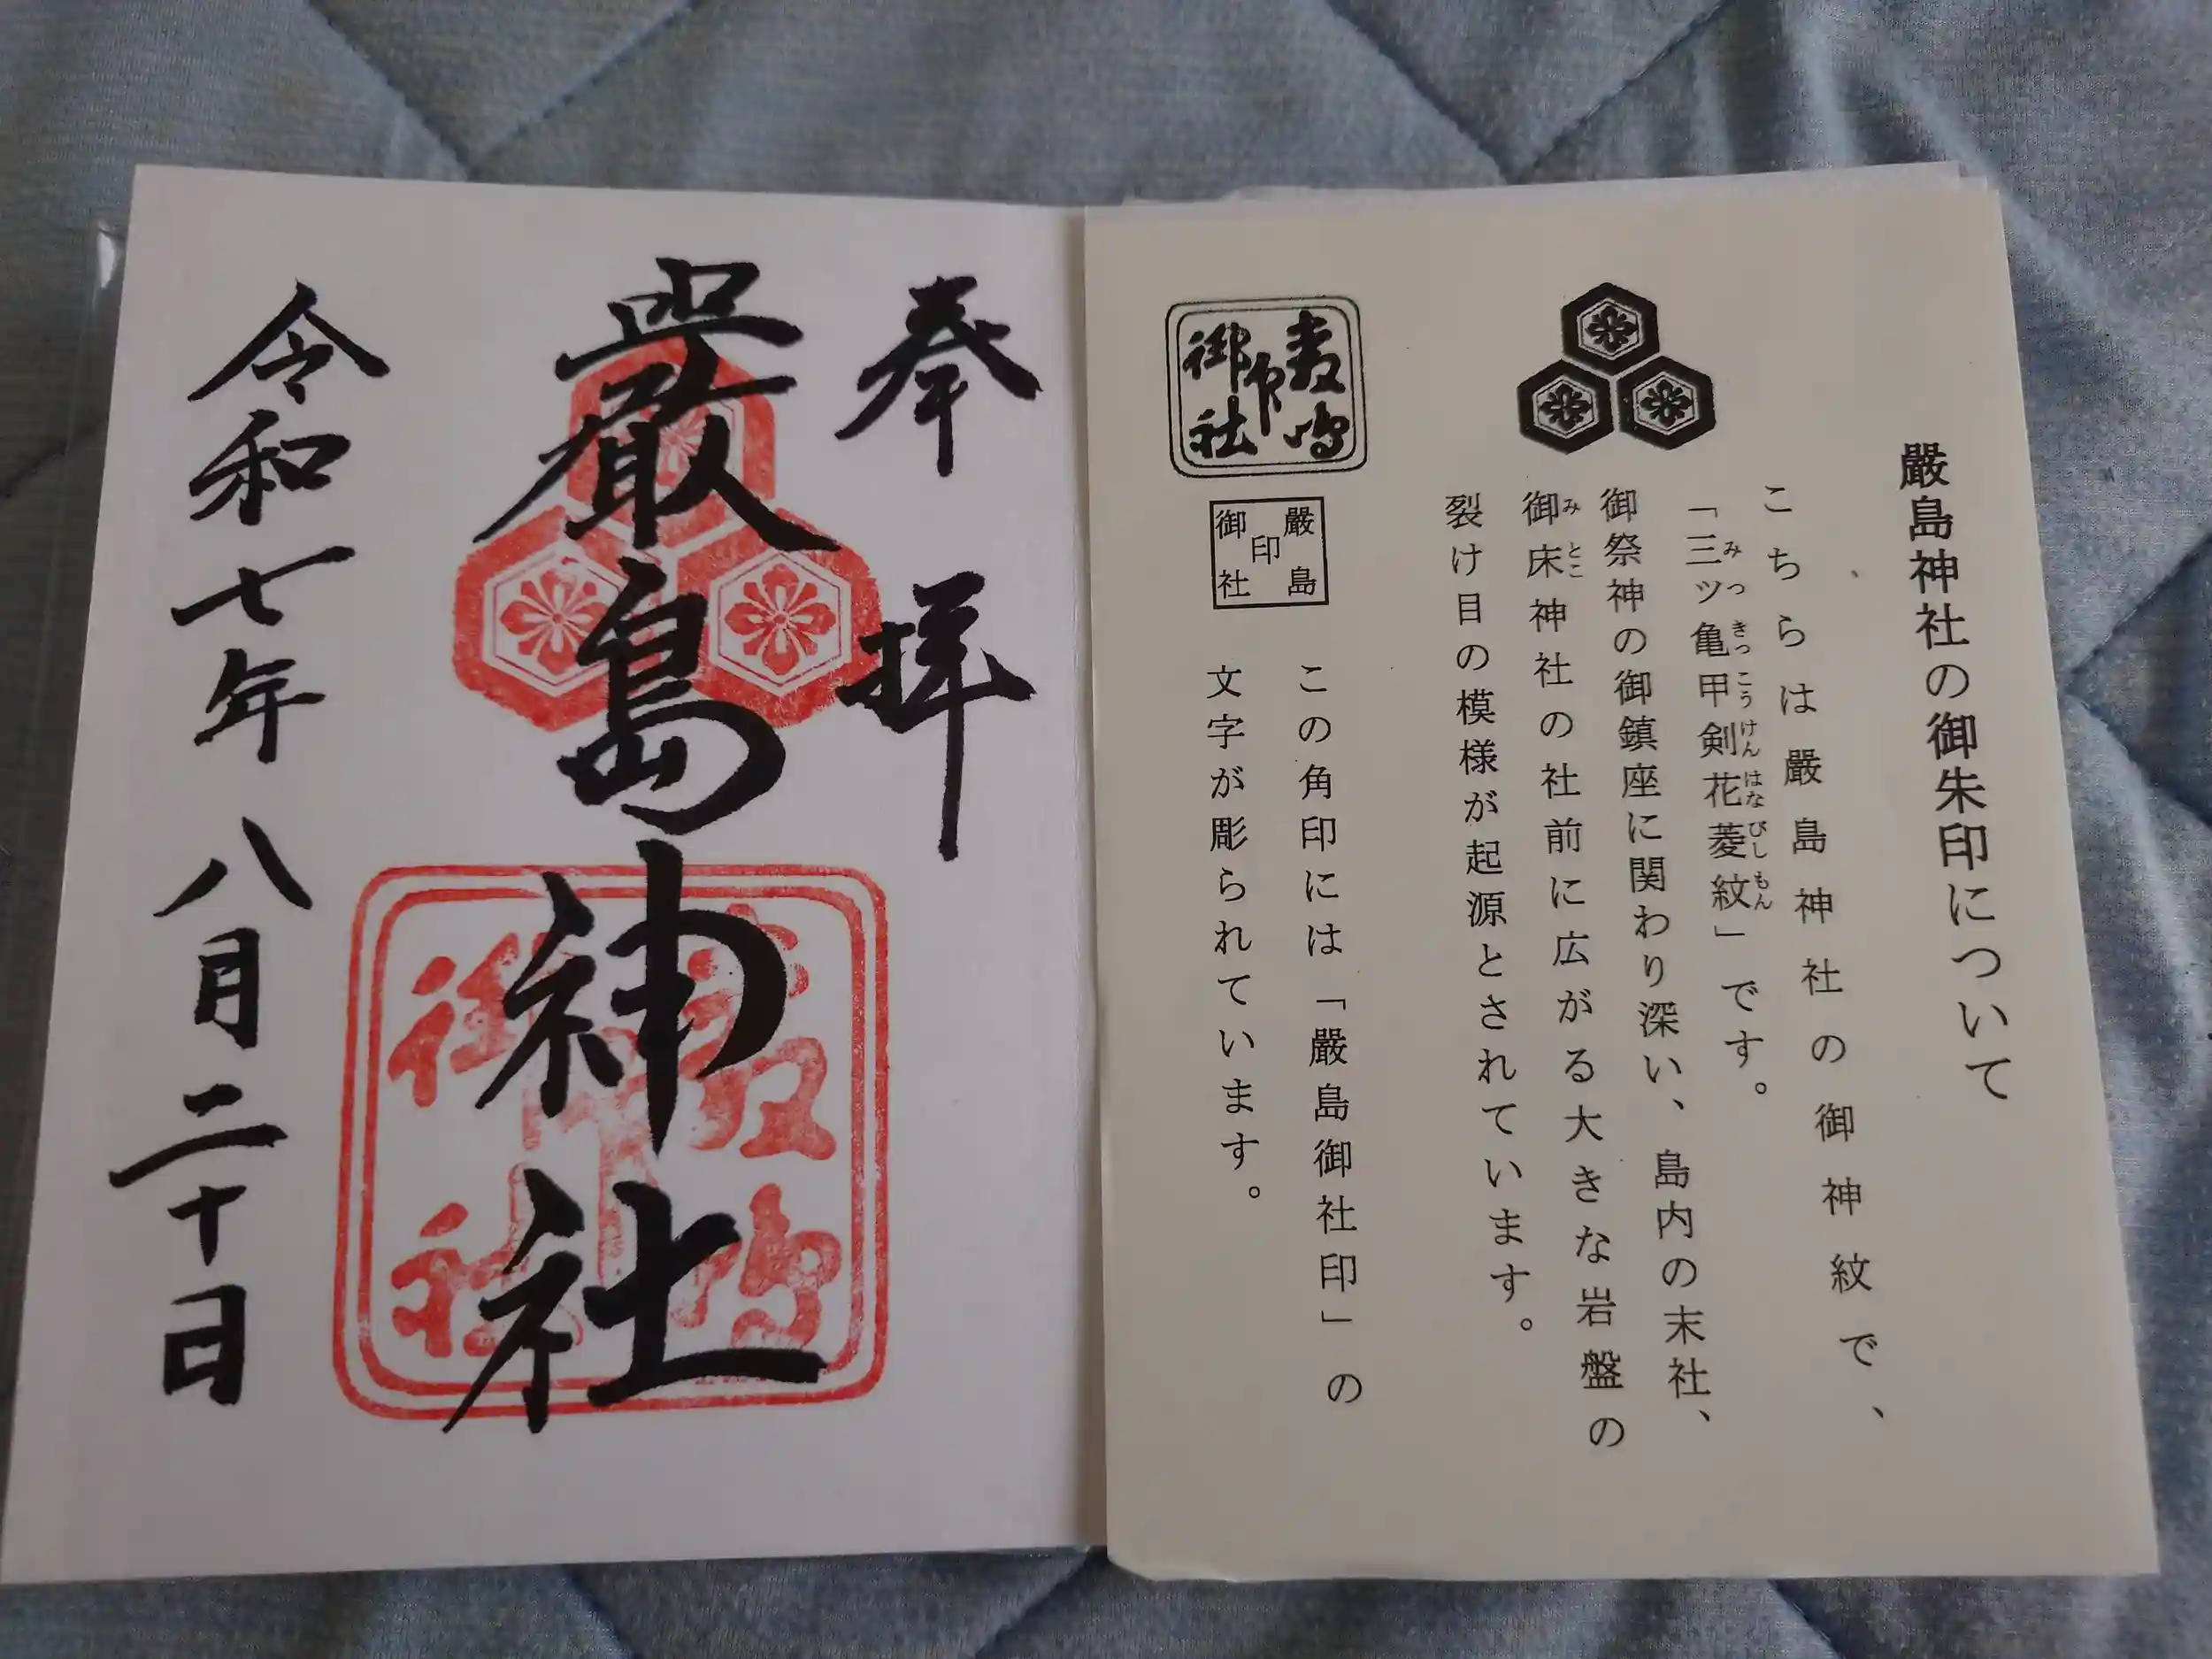 嚴島神社の御朱印について
こちらは嚴島神社の御神紋で、
「三ッ亀甲剣花菱紋」です。
みつきっこうけんはなびしもん
御祭神の御鎮座に関わり深い、島内の末社、
御床神社の社前に広がる大きな岩盤の
みとこ
裂け目の模様が起源とされています。
嚴島
印
御社
この角印には「嚴島御社印」の
文字が彫られています。
奉拝
嚴島神社
令和七年八月二十日